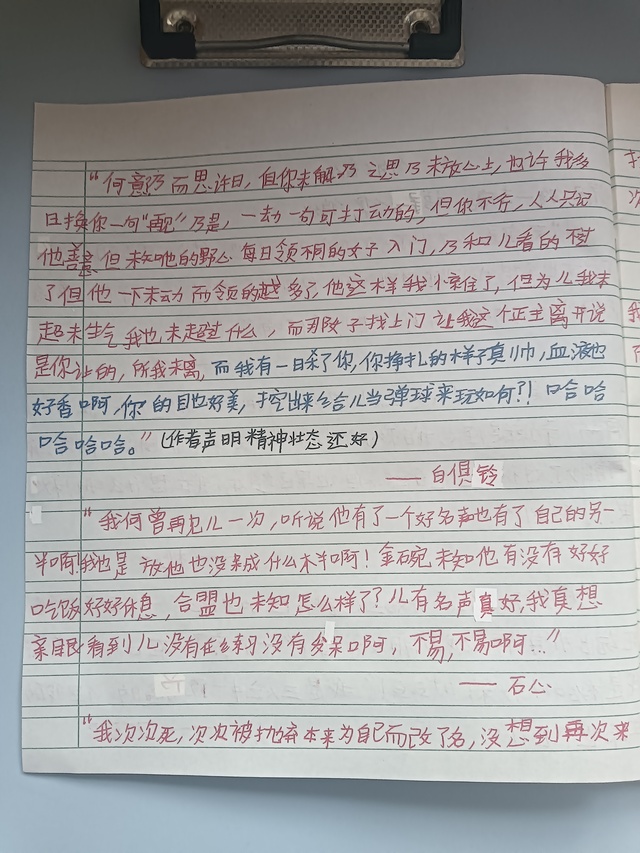 “何意乃而思许日，但你未解乃之思乃未放心上，也许我多
日换你一句“再配”乃是，一动一句可打动的，但你不行，人人只记
他善意但未知他的野心每日领不同的女子入门，乃和儿看的树
了但他一下未动而领的越多了，他这样我惊住了，但为儿我未
起未生气我也未超过什么，而那女子找上门让我这个正主离开说
是你让的，所我未离，而我有一日杀了你，你挣扎的样子真帅，血液也
好香啊，你的目也好美，挖出来给儿当弹球来玩如何?! 哈哈
哈哈哈。”(作者声明精神状态还好)
——白俱铃
“我何曾再见儿一次，听说他有了一个好名声也有了自己的另一
半啊!我也是放他也没呆成什么样啊！金碗未知他有没有好好
吃饭好好休息，合盟也未知怎么样了？儿有名声真好，我真想
亲眼看到儿没有在练习没有发呆啊，不易，不易啊...”
——石心
“我次次死，次次被抛弃本来为自己而改了名，没想到再次来